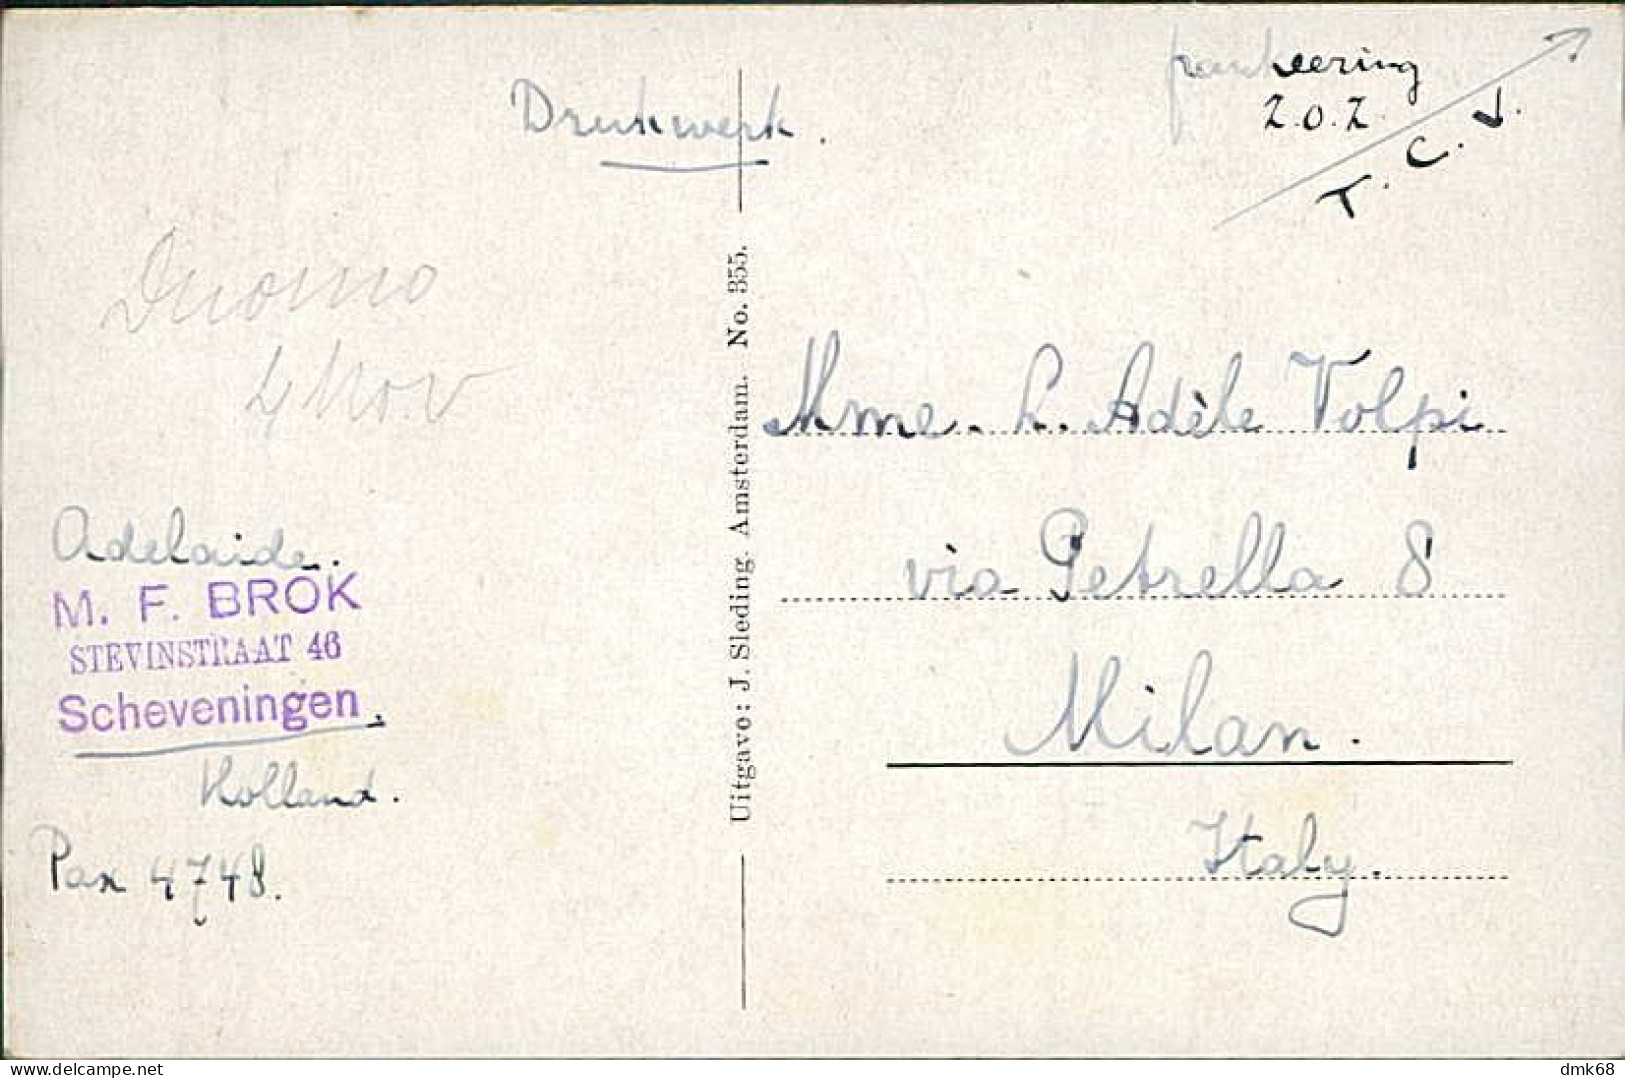 frankeering
Z.O.Z.
T. C. V.
Drukwerk.
Duomo
4 Nov
Mme. L. Adèle Volpi
via Petrella 8
Milan.
Italy.
Adelaide.
M. F. BROK
STEVINSTRAAT 46
Scheveningen.
Holland.
Pax 4748.
Uitgave: J. Sleding. Amsterdam. No. 355.
delcampe.net
dmk68